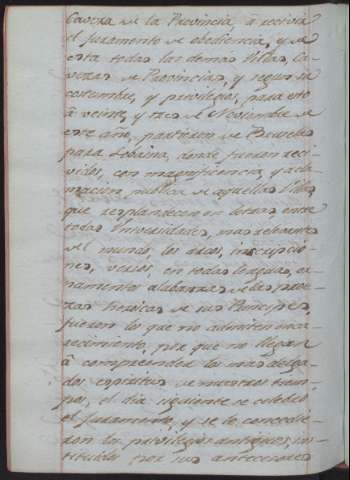 Caveza de la Provincia â recivir
el juramento de obediencia, y de
esta todas las demas Villas, ca-
vezas de Provincias, y segun su
costumbre, y privilegios, para esto
â veinte, y tres de Noviembre de
este año, partieron de Bruselas
para Lobaina, donde fueron reci-
vidos, con magnificencia y acla-
macion publica de aquellas Villas
que resplandecen en letras, entre
todas Universidades, mas celebres
del mundo, los arcos, inscripcio-
nes, versos, en todas lenguas, or-
namentos alabanzas de las proe-
zas heroicas de sus Principes,
fueron lo que no admiten enca-
recimiento, por que no llegan
â comprenderlos los mas delga-
dos espiritus de nuestros tiem-
pos, el dia siguiente se celebrô
el juramento, y se le concedie-
ron los privilegios antiguos, ins-
tituidos por sus antecesores